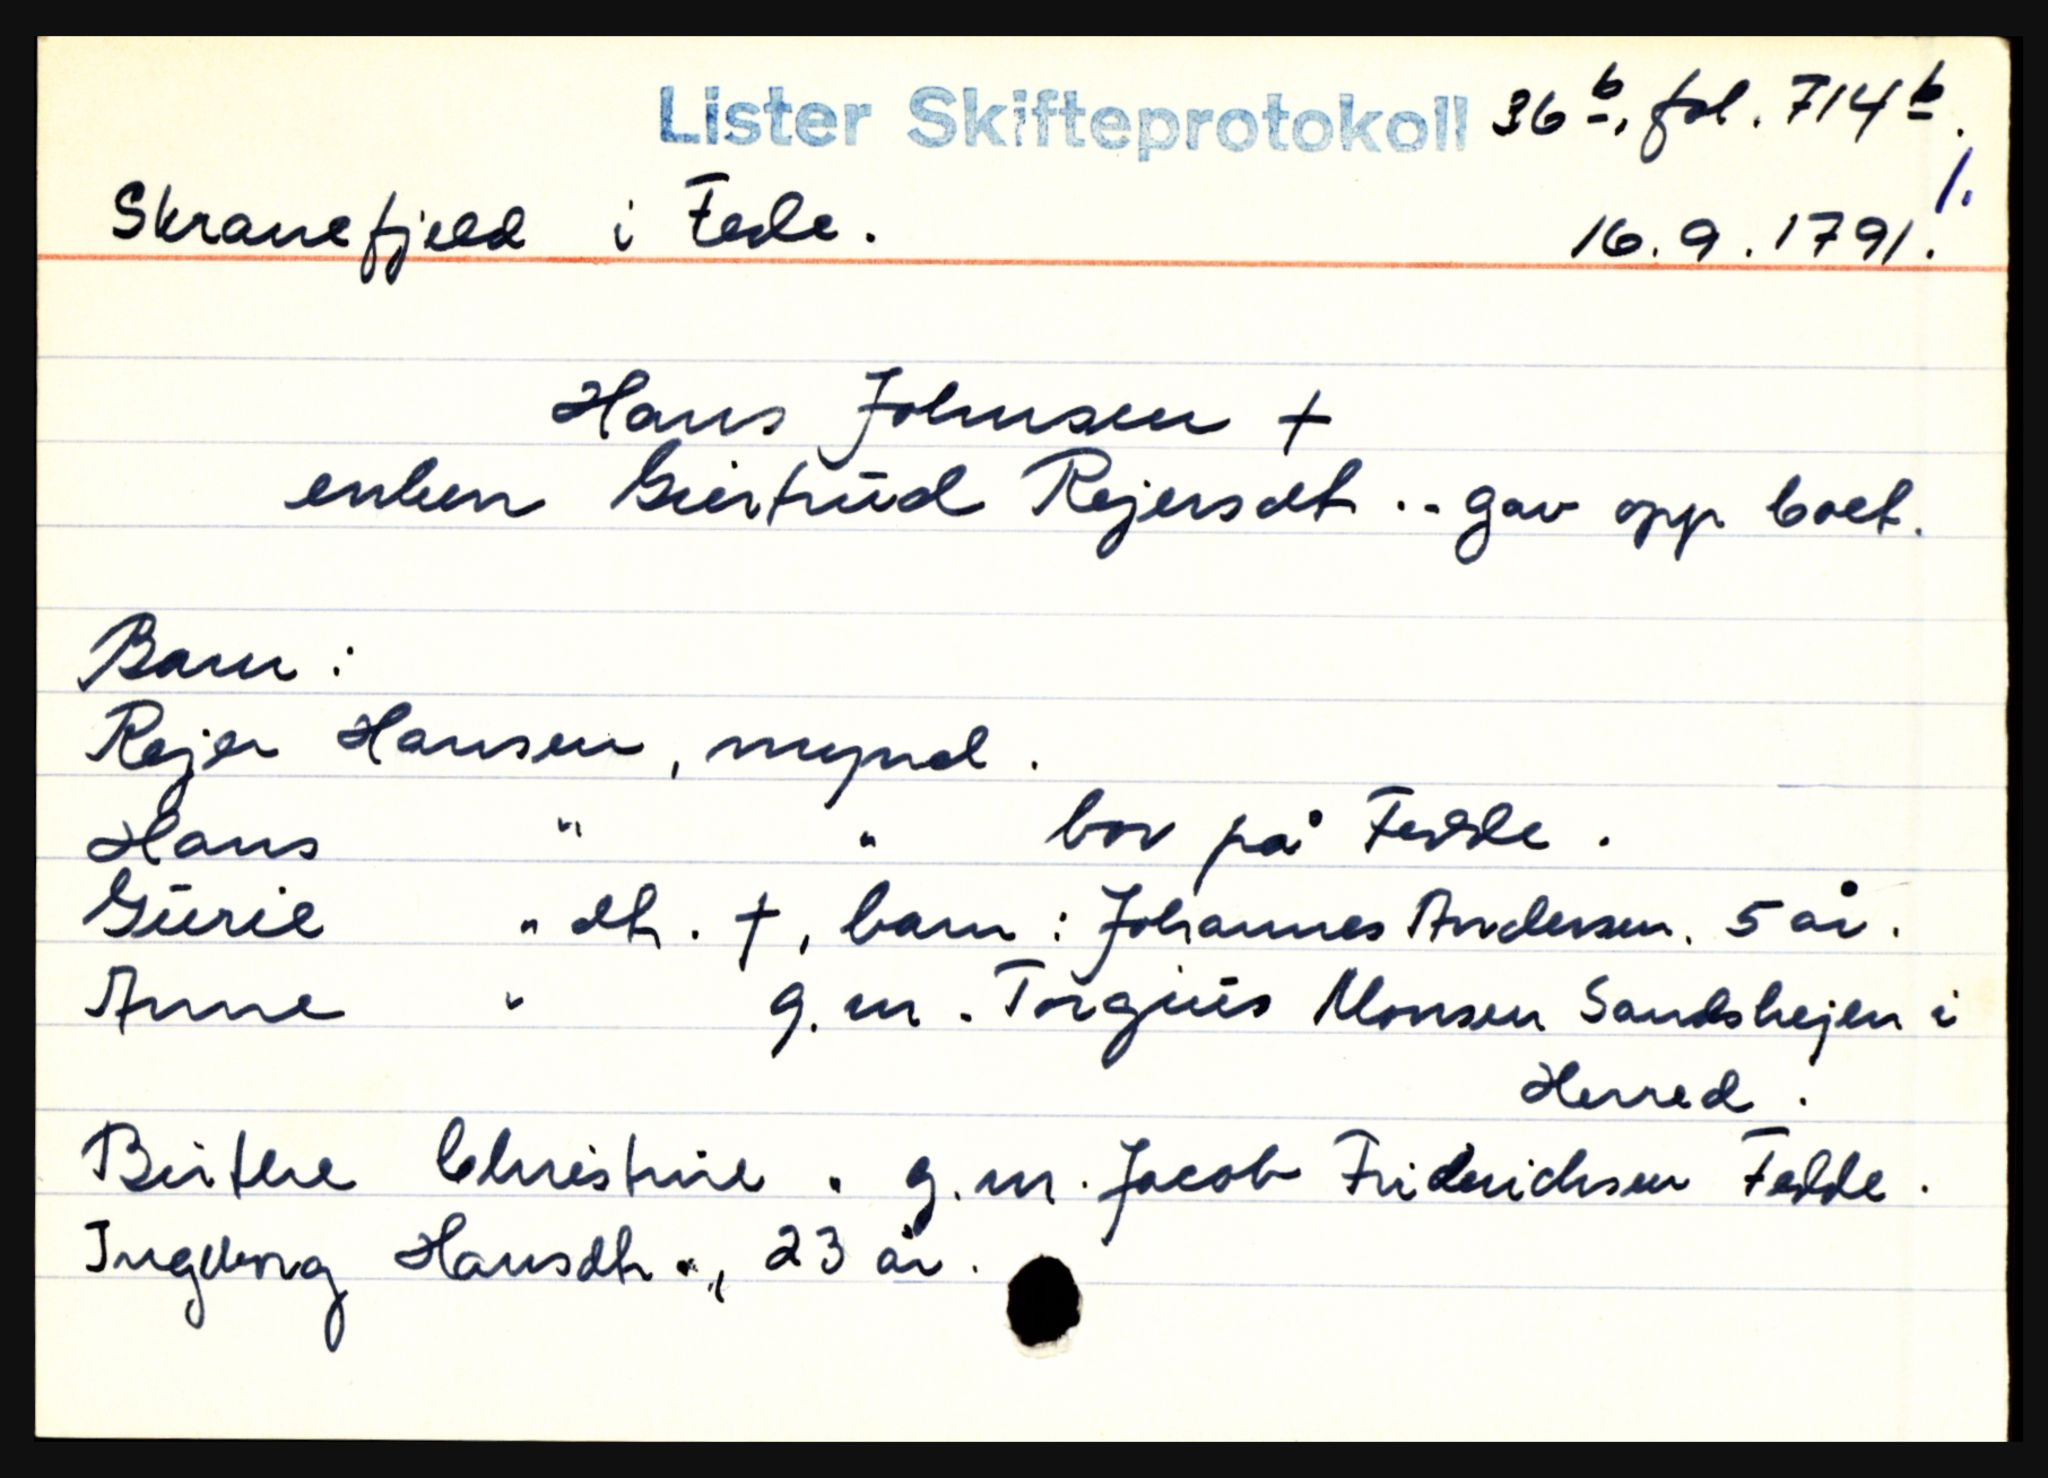 Lister Skifteprotokoll 36 b, fol. 714 b.
1.
Skranefjeld i Fede. 16.9.1791.
Hans Johnsen +
enken Giertrud Rejersdt .. gav opp boet.
Barn :
Rejer Hansen, mynd.
Hans " " bor på Fedde.
Gurie " dtr. +, barn : Johannes Andersen. 5 år.
Anne " g.m. Torgius Monsen Sandshejen i
Herred.
Birthe Christine " g.m. Jacob Friderichsen Fedde.
Ingborg Hansdtr. ", 23 år.